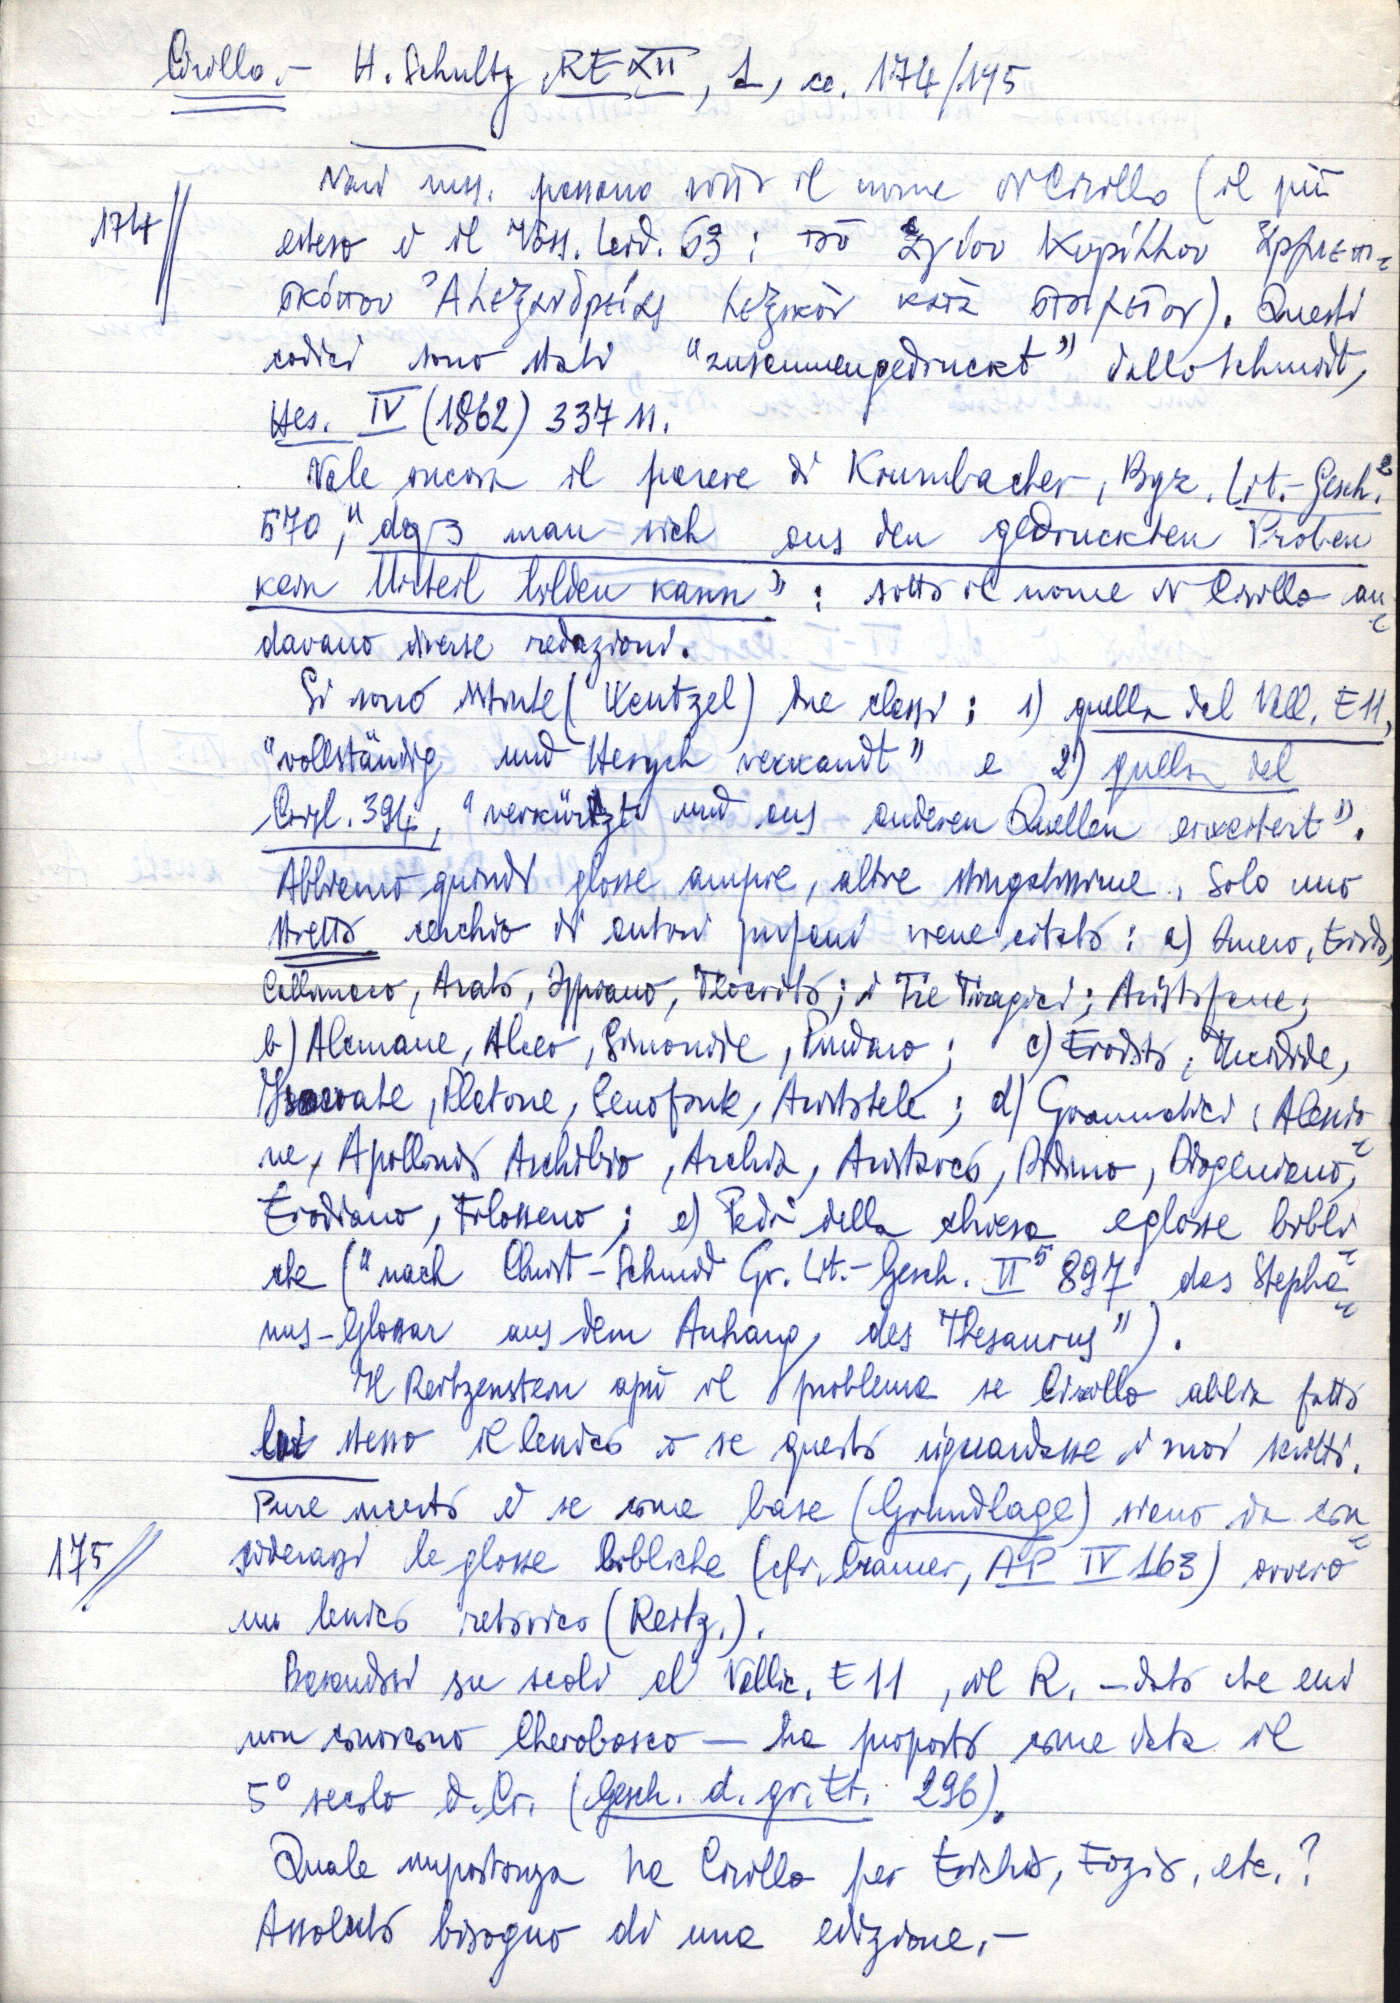 Cirillo.– H. Schultz, RE XII, 1, cc. 174/175
Vari mss. passano sotto il nome di Cirillo (il più
174// esteso è il Voss. Leid. 63: τοῦ ἁγίου Κυρίλλου Ἀρχιεπι-
σκόπου Ἀλεξανδρείας λεξικὸν κατὰ στοιχεῖον). Questi
codici sono stati "zusammengedruckt" dallo Schmidt,
Hes. IV (1862) 337 ss.
Vale ancora il parere di Krumbacher, Byz. Lit.-Gesch.²
570, "daß man sich aus den gedruckten Proben
kein Urteil bilden kann": sotto il nome di Cirillo an-
davano diverse redazioni.
Si sono distinte (Wentzel) due classi: 1) quella del Vall. E 11,
"vollständig und Hesych verwandt" e 2) quella del
Coisl. 394, "verkürzt und aus anderen Quellen erweitert".
Abbiamo quindi glosse ampie, altre stringatissime. Solo uno
stretto cerchio di autori profani viene citato: a) Omero, Esiodo,
Callimaco, Arato, Oppiano, Teocrito; i Tre Tragici; Aristofane;
b) Alcmane, Alceo, Simonide, Pindaro; c) Erodoto, Tucidide,
Isocrate, Platone, Senofonte, Aristotele; d) Grammatici: Alessio-
ne, Apollonio Archibio, Archia, Aristarco, Didimo, Diogeniano,
Erodiano, Filosseno; e) Padri della chiesa e glosse bibli-
che ("nach Christ-Schmid Gr. Lit.-Gesch. II⁵ 897 das Stepha-
nus-Glossar aus dem Anhang des Thesaurus").
Il Reitzenstein aprì il problema se Cirillo abbia fatto
lui stesso il lessico o se questo riguardasse i suoi scritti.
Pure incerto è se come base (Grundlage) siano da con-
175// siderarsi le glosse bibliche (cfr. Cramer, AP IV 163) ovvero
un lessico retorico (Reitz.).
Basandosi su scoli al Vallic. E 11, il R. – dato che essi
non conoscono Cherobosco – ha proposto come data il
5° secolo d.Cr. (Gesch. d. gr. Et. 296).
Quale importanza ha Cirillo per Esichio, Fozio, etc.?
Assoluto bisogno di una edizione.–